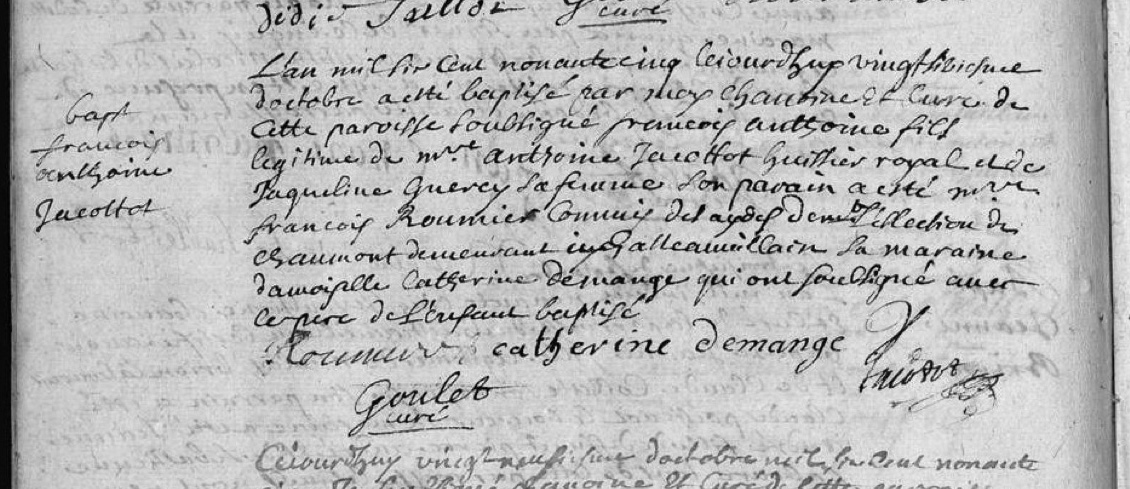 curé
L'an mil six cent nonante cinq ce jourdhuy vingtsixiesme
doctobre a esté baptisé par moy chanoine et curé de
cette paroisse soubsigné francois anthoine fils
legitime de mre anthoine Jacottot huissier royal et de
Jaqueline Quercy sa femme son parain a esté mre
francois Roumier Commis des aydes de en l'Ellection de
chaumont demeurant in chasteauvillain sa maraine
damoiselle Catherine demange qui ont soubsigné avec
le pere de l'enfant baptisé
bapt
francois
anthoine
Jacottot
Roumier catherine demange
Jacotot
Goulet
curé
Cejourdhuy vingt neufiesme doctobre mil six cent nonante